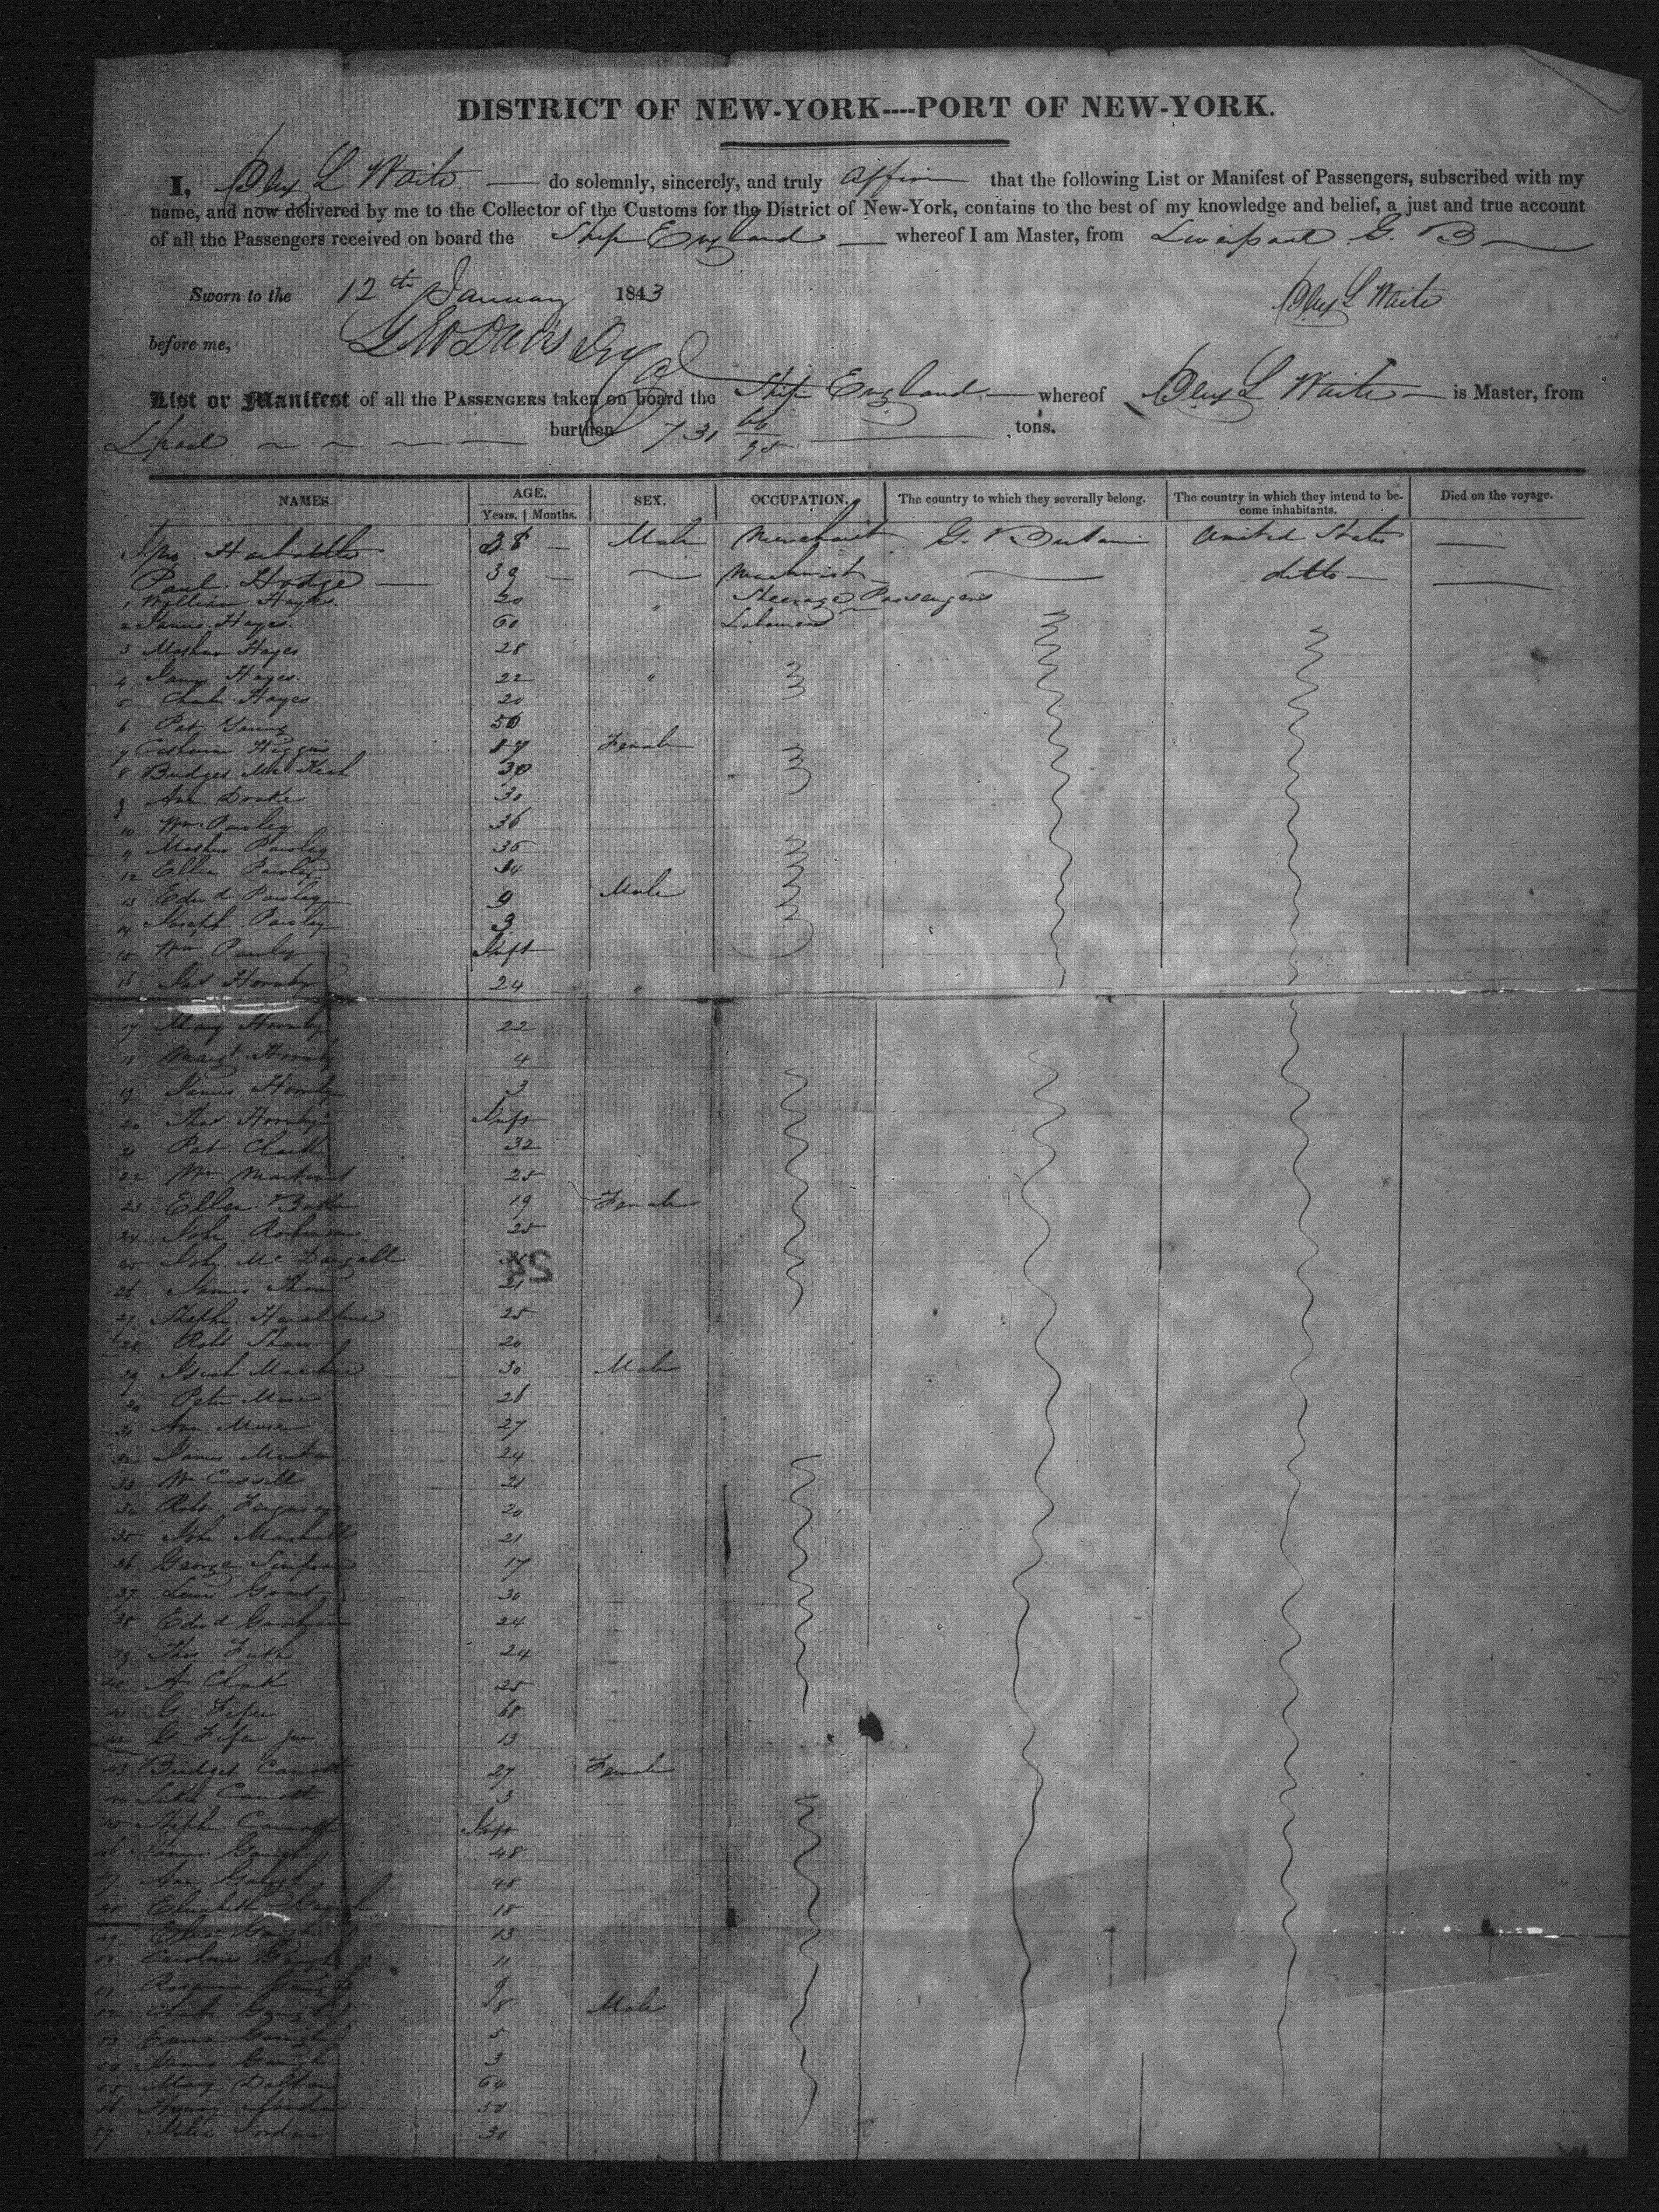 DISTRICT OF NEW-YORK----PORT OF NEW-YORK.
I, Benj L Waite do solemnly, sincerely, and truly affirm that the following List or Manifest of Passengers, subscribed with my
name, and now delivered by me to the Collector of the Customs for the District of New-York, contains to the best of my knowledge and belief, a just and true account
of all the Passengers received on board the Ship England whereof I am Master, from Liverpool G. B
Sworn to the 12th January 1843 Benj L Waite
before me,
List or Manifest of all the PASSENGERS taken on board the Ship England whereof Benj L Waite is Master, from
Lpool burthen 731 66/95 tons.
NAMES. AGE. SEX. OCCUPATION. The country to which they severally belong. The country in which they intend to be- Died on the voyage.
Years. | Months. come inhabitants.
Harbottle 38 Male Merchant G. Britain United States
Paul Hodge 39 Machinist ditto
1 William Hayes. 20 " Steerage Passengers
2 James Hayes. 60 Labourers
3 Hayes 28
4 James Hayes. 22 "
5 Hayes 20
6 Pat. Young 50
7 Catherine Higgins 17 Female
8 30
9 Ann Drake 30
10 Wm. Pawley 36
11 Pawley 35
12 Ellen Pawley 14
13 Edwd Pawley 9 Male
14 Joseph Pawley 3
15 Wm Pawley Inft
16 Jas Hornby 24 "
17 Mary Hornby 22
18 Margt Hornby 4
19 James Hornby 3
20 Thos Hornby Inft
21 Pat. Clark 32
22 Wm 25
23 Ellen 19 Female
24 John Robinson 25
25 John McDougall
26 James 21
27 Stephn 25
28 Robt Shaw 20
29 30 Male
30 Peter Muse 26
31 Ann Muse 27
32 James 24
33 Wm Cassell 21
34 Robt Ferguson 20
35 John Marshall 21
36 George Simpson 17
37 Lewis Grant 30
38 Edwd Graham 24
39 Thos Firth 24
40 A. Clark 25
41 G. Fifer 68
42 G. Fifer Jun. 13
43 Bridget 27 Female
44 Luke 3
45 Stephn Inft
46 James Gough 48
47 Ann Gough 48
48 Elizabeth Gough 18
49 Eliza Gough 13
50 Caroline Gough 11
51 Rosanna Gough 9
52 Charles Gough 8 Male
53 Emma Gough 5
54 James Gough 3
55 Mary Dalton 64
56 Henry Jordan 50
57 Jordan 30